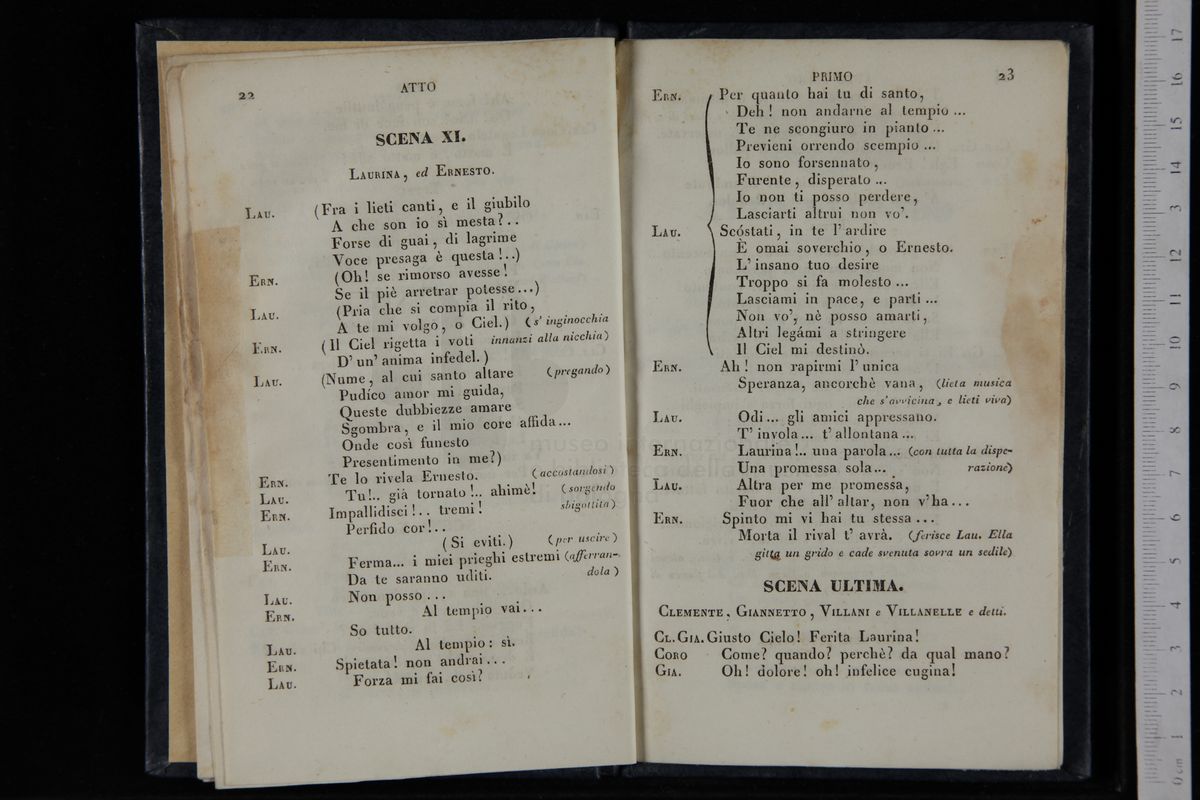 22
ATTO
SCENA XI.
LAURINA, ed ERNESTO.
LAU. (Fra i lieti canti, e il giubilo
A che son io sì mesta?..
Forse di guai, di lagrime
Voce presaga è questa!..)
ERN. (Oh! se rimorso avesse!
Se il piè arretrar potesse...)
LAU. (Pria che si compia il rito,
A te mi volgo, o Ciel.) (s' inginocchia
ERN. (Il Ciel rigetta i voti innanzi alla nicchia)
D' un' anima infedel.)
LAU. (Nume, al cui santo altare (pregando)
Pudíco amor mi guida,
Queste dubbiezze amare
Sgombra, e il mio core affida...
Onde così funesto
Presentimento in me?)
ERN. Te lo rivela Ernesto. (accostandosi)
LAU. Tu!.. già tornato!.. ahimè! (sorgendo
ERN. Impallidisci!.. tremi! sbigottita)
Perfido cor!..
LAU. (Si eviti.) (per uscire)
ERN. Ferma... i miei prieghi estremi (afferran-
Da te saranno uditi. dola)
LAU. Non posso...
ERN. Al tempio vai...
So tutto.
LAU. Al tempio: sì.
ERN. Spietata! non andrai...
LAU. Forza mi fai così?
PRIMO
23
ERN. Per quanto hai tu di santo,
Deh! non andarne al tempio...
Te ne scongiuro in pianto...
Previeni orrendo scempio...
Io sono forsennato,
Furente, disperato...
Io non ti posso perdere,
Lasciarti altrui non vo'.
LAU. Scóstati, in te l' ardire
È omai soverchio, o Ernesto.
L' insano tuo desire
Troppo si fa molesto...
Lasciami in pace, e parti...
Non vo', nè posso amarti,
Altri legámi a stringere
Il Ciel mi destinò.
ERN. Ah! non rapirmi l' unica
Speranza, ancorchè vana, (lieta musica
che s'avvicina, e lieti viva)
LAU. Odi... gli amici appressano.
T' invola... t' allontana...
ERN. Laurina!.. una parola... (con tutta la dispe-
Una promessa sola... razione)
LAU. Altra per me promessa,
Fuor che all' altar, non v'ha...
ERN. Spinto mi vi hai tu stessa...
Morta il rival t' avrà. (ferisce Lau. Ella
gitta un grido e cade svenuta sovra un sedile)
SCENA ULTIMA.
CLEMENTE, GIANNETTO, VILLANI e VILLANELLE e detti.
CL. GIA. Giusto Cielo! Ferita Laurina!
CORO Come? quando? perchè? da qual mano?
GIA. Oh! dolore! oh! infelice cugina!
museo internazionale